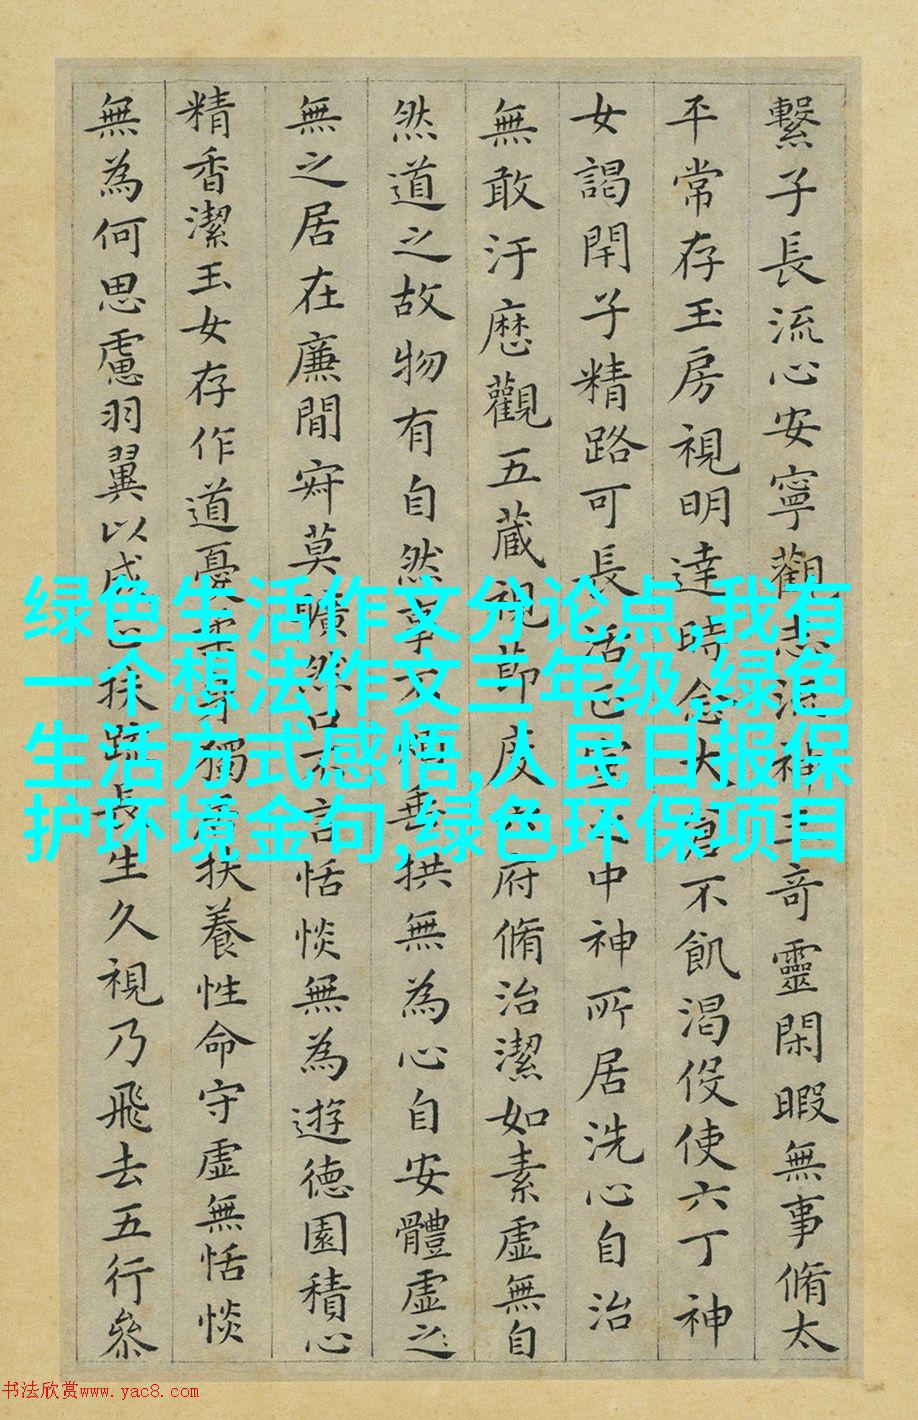 繫子長流心安寧觀志流神三奇靈閑暇無事脩太
平常存玉房視明達時念大倉不飢渴役使六丁神
女謁閇子精路可長活正室之中神所居洗心自治
無敢汙歷觀五蔵視節度六府脩治潔如素虛無自
然道之故物有自然事不煩垂拱無為心自安體虛之
無之居在廉間莫曠然口不言恬惔無為遊德園積心
精香潔玉女存作道憂柔身獨居扶養性命守虛無恬惔
無為何思慮羽翼以成正扶疏長生久視乃飛去五行叅
绿色生活作文分论点,我有
一个想法作文三年级,绿色
生活方式感悟,人民日报保
护环境金句,绿色环保项目
书法欣赏www.yac8.com